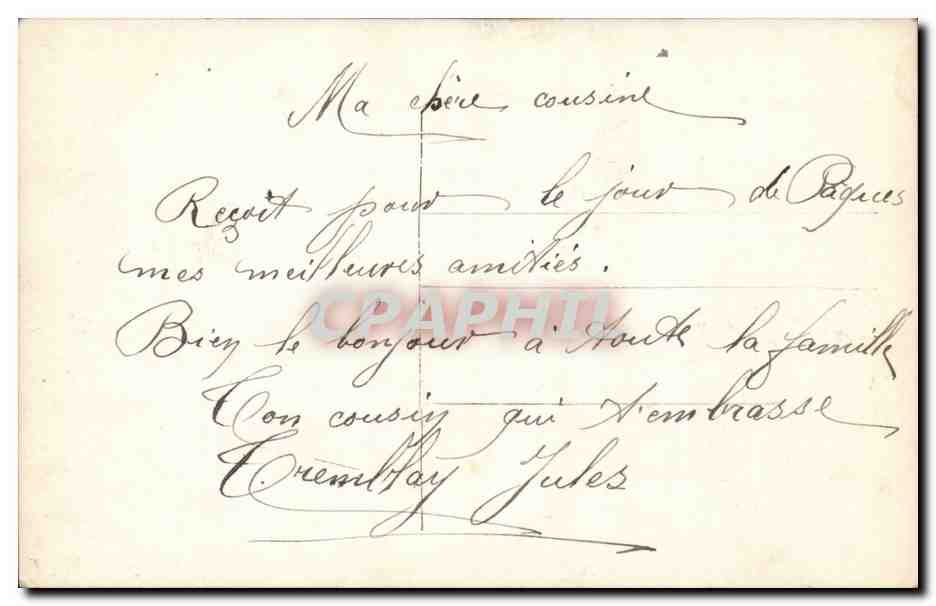 Ma chère cousine
Reçoit pour le jour de Pâques
mes meilleures amitiés.
Bien le bonjour à toute la famille
Ton cousin qui t'embrasse
Tremblay Jules
CPAPHIL